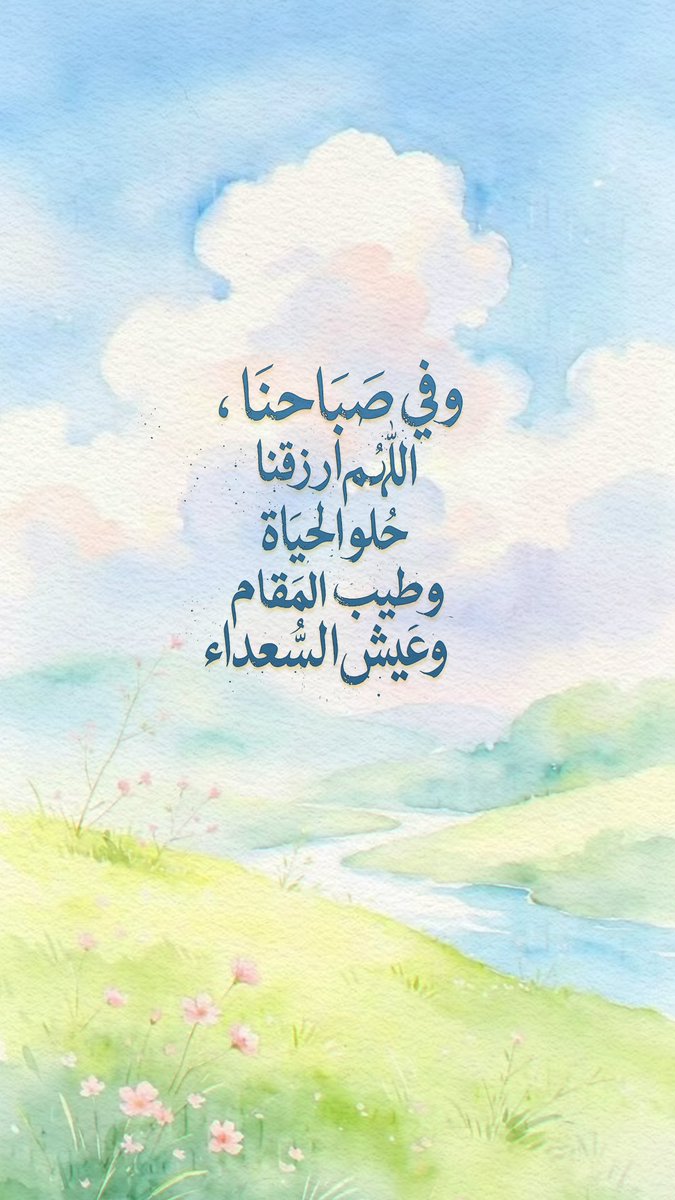 وفي صَبَاحنَا ،
اللّهُم ارزقنا
حُلو الحيَاة
وطيب المَقام
وعَيش السُّعداء